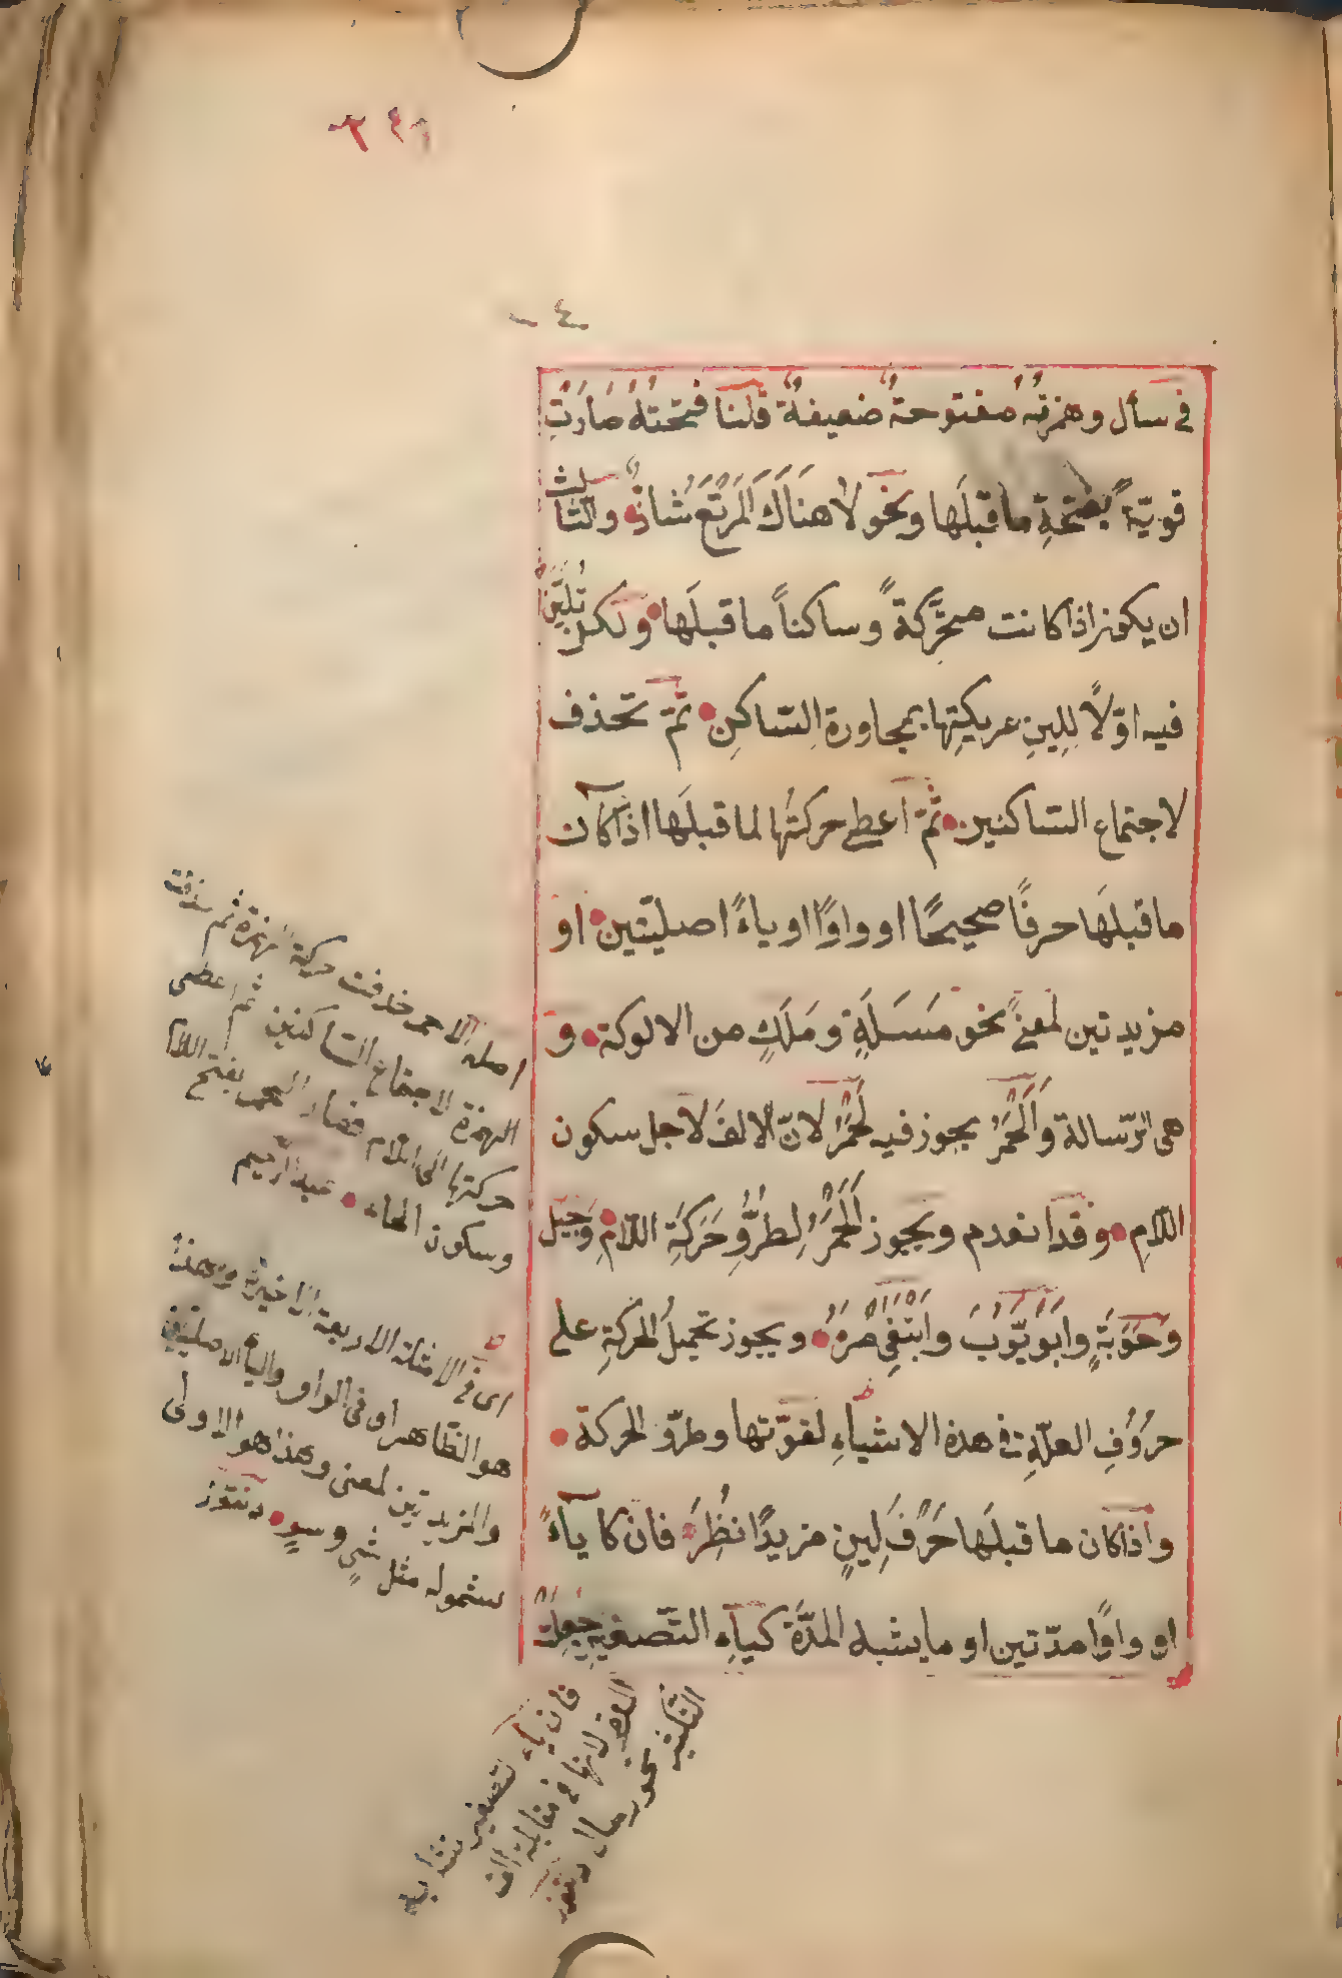 ٤
في سأل وهمزتُهُ مفتوحةٌ ضعيفةٌ قلنا فتحتهُ صَارَتْ
قويّةً بفتحةِ ما قبلَها ونحو لا هنَاكَ المَرْتَعُ شاذٌّ والثالث
ان يكون اذا كانت متحرَّكةً وساكناً ما قبلَها ولكن تُليّنُ
فيه اوّلًا لِلِينِ عريكتِها بمجاورة السّاكنِ ثمّ تحذف
لاجتماع السّاكنين ثمّ اعطى حركتُها لما قبلَها اذا كان
ما قبلَها حرفًا صحيحًا او واوًا او ياءً اصليّتين او
مزيدتين لمعنًى نحو مَسَلَةٍ ومَلَكٍ من الالوكة و
هى الرّسالة وَاَلَحْمَرُ يجوز فيه لَحْمَرُ لانّ الالفَ لاجل سكون
اللّامِ وقد انعدم ويجوز اَلَحْمَرُ لِطُرُوِّ حَرَكَةِ اللّامِ وَجَيَل
وَحَوَبَةٍ وابَوَيّوُبَ وابْتَغِىَ مْرَهُ ويجوز تحميلُ الحركةِ على
حرُوُفِ العلّةِ فى هذه الاشياءِ لقوّتها وطروّ الحركة
واذا كان ما قبلَها حَرْفَ لِينٍ مزيدًا نظُِرَ فان كا ياءً
او واوًا مدّتين او ما يشبه المدَّةَ كياءِ التّصغيرِ جُعِلَتْ
اصله الاحمر حذفت حركة الهمزة ثم حذفت
الهمزة لاجتماع السّاكنين ثم اعطى
حركتها الى اللام فصار الحمر بفتح اللام
وسكون الحاء عبد الرّحيم
اى فى الامثلة الاربعة الاخيرة وهذا
هو الظّاهر او فى الواو والياء الاصليتين
والمزيدتين لمعنى وهذا هو الاولى
لشموله مثل شىٍ وسوٍ دنقوز
فان ياء التصغير تشابه
الف لانها فى مقابلة الف
التكثير نحو رجال دنقوز